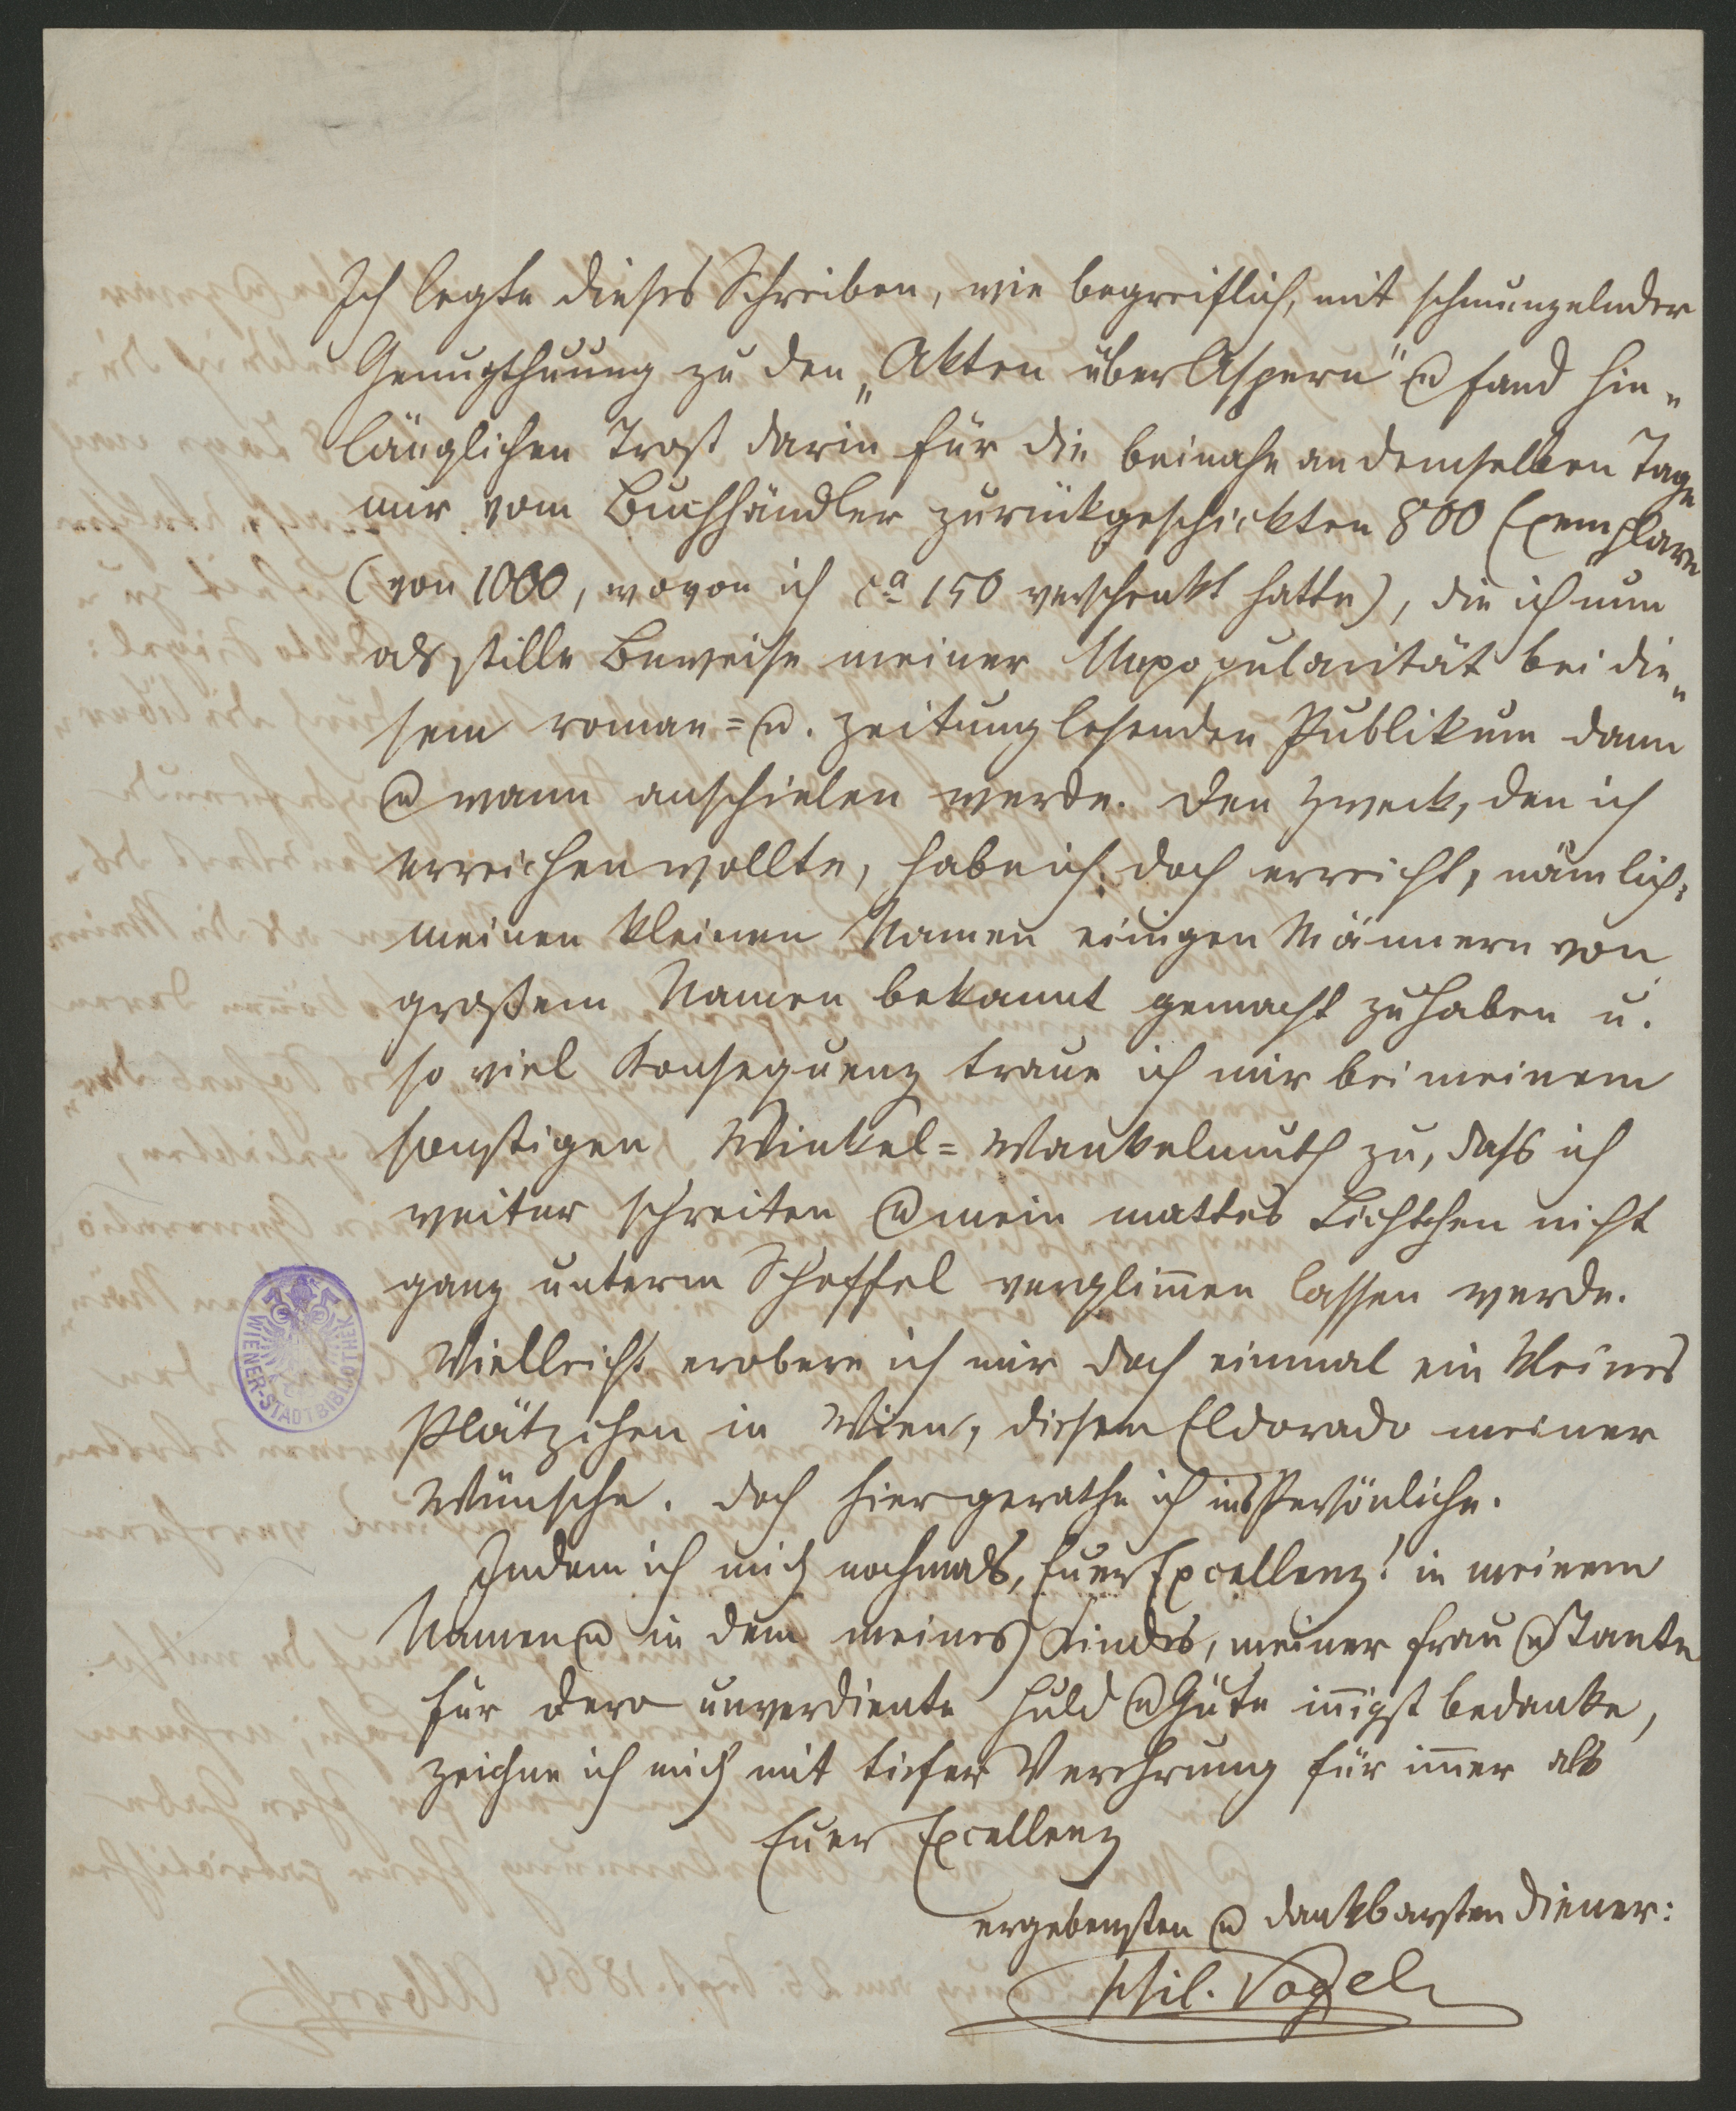 Ich legte dieses Schreiben, wie begreiflich, mit schmunzelnder
Genugthuung zu den „Akten über Aspern" u fand hin„
länglichen Trost darin für die beinahe an demselben Tage
mir vom Buchhändler zurückgeschickten 800 Exemplare
(von 1000, wovon ich ca 150 verschenkt hatte), die ich nun
als stille Beweise meiner Unpopularität bei die„
sem roman= u. zeitunglesenden Publikum dann
u wann anschielen werde. Den Zweck, den ich
erreichen wollte, habe ich doch erreicht, nämlich:
meinen kleinen Namen einigen Männern von
großem Namen bekannt gemacht zu haben u.
so viel Konsequenz traue ich mir bei meinem
sonstigen Winkel=Wankelmuth zu, dass ich
weiter schreiten u mein mattes Lichtchen nicht
ganz unterm Scheffel verglimmen lassen werde.
Vielleicht erobere ich mir doch einmal ein kleines
Plätzchen in Wien, diesem Eldorado meiner
Wünsche. Doch hier gerathe ich ins Persönliche.
Indem ich mich nochmals, Euer Excellenz! in meinem
Namen u in dem meines Kindes, meiner Frau u Tante
für dero unverdiente Huld u Güte innigst bedanke,
zeichne ich mich mit tiefer Verehrung für immer als
Euer Excellenz
ergebensten u dankbarsten Diener:
Phil. Vogel
WIENER-STADTBIBLIOTHEK